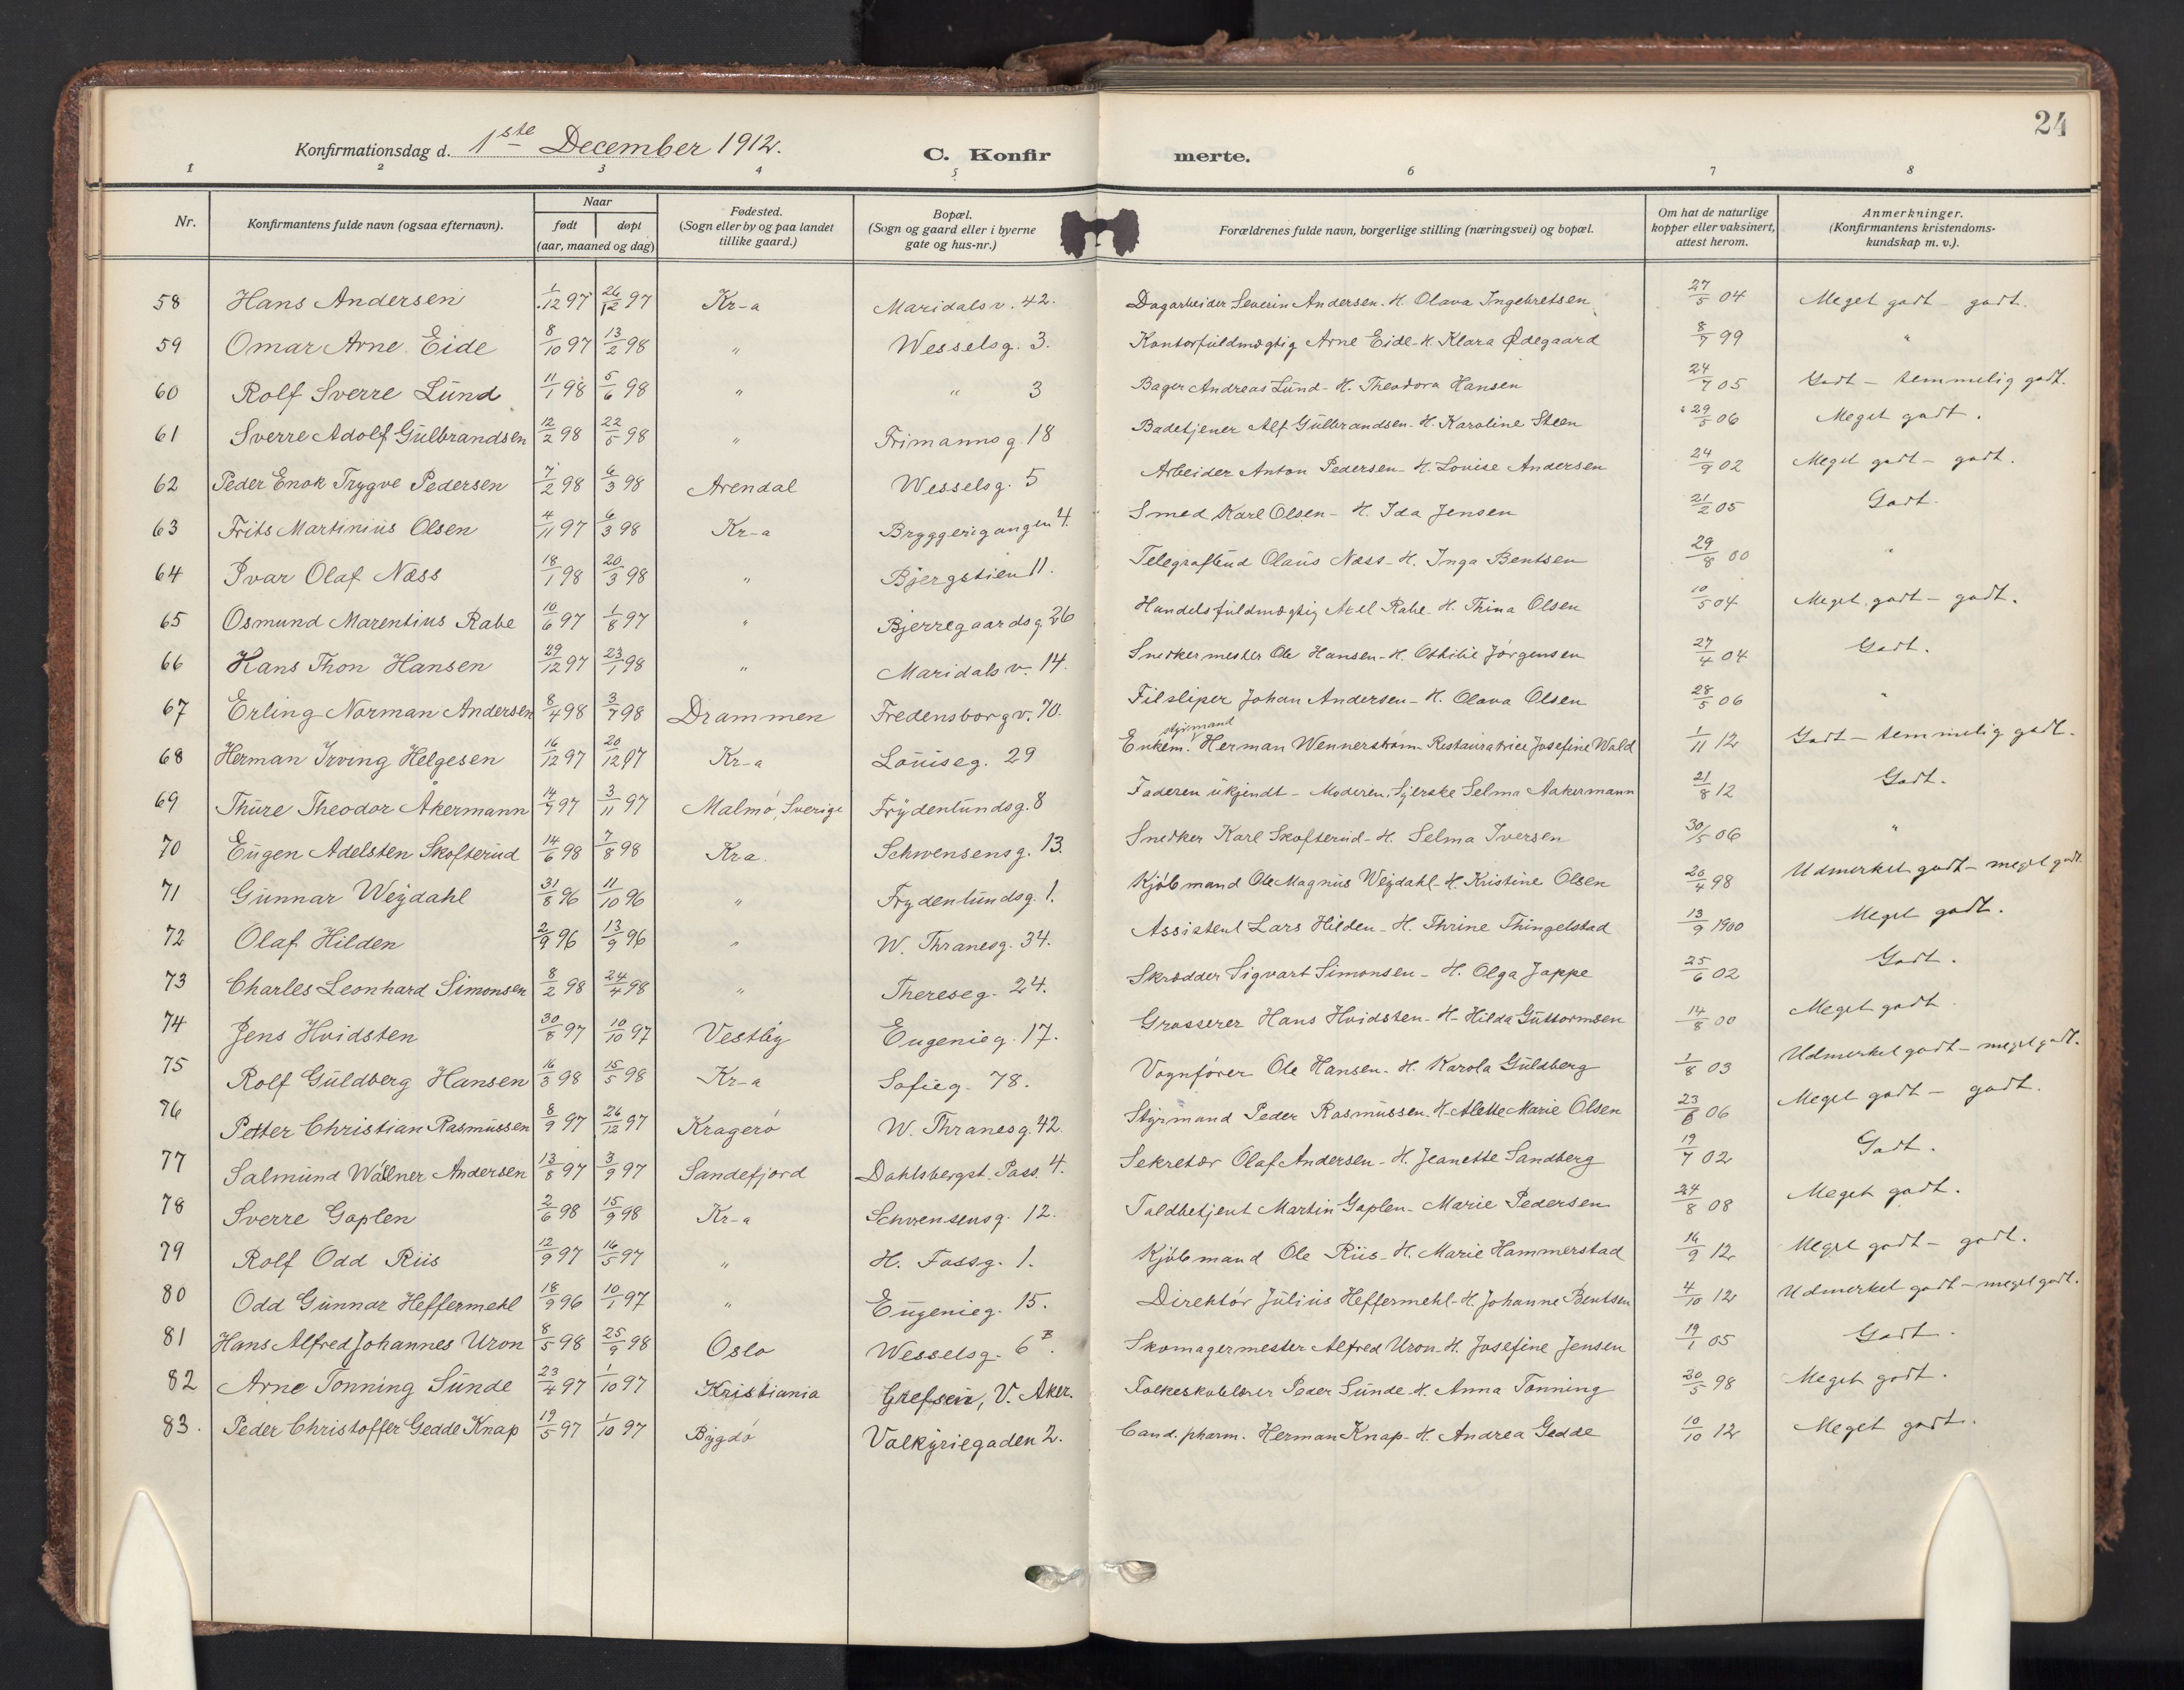 24
Konfirmationsdag d. 1ste December 1912.
C. Konfirmerte.
1 2 3 4 5 6 7 8
Nr. | Konfirmantens fulde navn (ogsaa efternavn). | Naar født døpt (aar, maaned og dag) | Fødested. (Sogn eller by og paa landet tillike gaard.) | Bopæl. (Sogn og gaard eller i byerne gate og hus-nr.) | Forældrenes fulde navn, borgerlige stilling (næringsvei) og bopæl. | Om hat de naturlige kopper eller vaksinert, attest herom. | Anmerkninger. (Konfirmantens kristendomskundskap m. v.).
58 Hans Andersen 1/12 97 26/12 97 Kr-a Maridalsv. 42. Dagarbeider Severin Andersen. H. Olava Ingebretsen 27/5 04 Meget godt - godt.
59 Omar Arne Eide 8/10 97 13/2 98 " Wesselsg. 3. Kontorfuldmægtig Arne Eide - H. Klara Ødegaard 8/7 99 "
60 Rolf Sverre Lund 11/1 98 5/6 98 " " 3 Bager Andreas Lund - H. Theodora Hansen 24/7 05 Godt - temmelig godt.
61 Sverre Adolf Gulbrandsen 12/2 98 22/5 98 " Frimannsg. 18 Badetjener Alf Gulbrandsen - H. Karoline Steen 29/5 06 Meget godt.
62 Peder Enok Trygve Pedersen 7/2 98 6/3 98 Arendal Wesselsg. 5 Arbeider Anton Pedersen - H. Lovise Andersen 24/9 02 Meget godt - godt.
63 Frits Martinius Olsen 4/11 97 6/3 98 Kr-a Bryggerigangen 4. Smed Karl Olsen - H. Ida Jensen 21/2 05 Godt.
64 Ivar Olaf Næss 18/1 98 20/3 98 " Bjergstien 11. Telegrafbud Olaus Næss - H. Inga Bentsen 29/8 00 "
65 Osmund Marentius Rabe 10/6 97 1/8 97 " Bjerregaardsg. 26 Handelsfuldmægtig Axel Rabe - H. Thina Olsen 10/5 04 Meget godt - godt.
66 Hans Thon Hansen 29/12 97 23/1 98 " Maridalsv. 14. Snedkermester Ole Hansen - H. Othilie Jørgensen 27/4 04 Godt.
67 Erling Norman Andersen 8/4 98 3/7 98 Drammen Fredensborgv. 70. Filsliper Johan Andersen - H. Olava Olsen 28/5 06 "
68 Herman Irving Helgesen 16/12 97 20/12 97 Kr-a Louiseg. 29 Enkem. styrmand Herman Wennerstrøm - Restauratrice Josefine Wold 1/11 12 Godt - temmelig godt.
69 Thure Theodor Åkermann 14/7 97 3/11 97 Malmø, Sverige Frydenlundsg. 8 Faderen ukjendt - Moderen. Syerske Selma Aakermann 21/8 12 Godt.
70 Eugen Adelsten Skofterud 14/6 98 7/8 98 Kra. Schwensensg. 13. Snedker Karl Skofterud - H. Selma Iversen 30/5 06 "
71 Gunnar Weydahl 31/8 96 11/10 96 " Frydenlundsg. 1. Kjøbmand Ole Magnus Weydahl - H. Kristine Olsen 20/4 98 Udmerket godt - meget godt.
72 Olaf Hilden 2/9 96 13/9 96 " W. Thranesg. 34. Assistent Lars Hilden - H. Thrine Thingelstad 13/9 1900 Meget godt.
73 Charles Leonhard Simonsen 8/2 98 24/4 98 " Thereseg. 24. Skrædder Sigvart Simonsen - H. Olga Jappe 25/6 02 Godt.
74 Jens Hvidsten 30/8 97 10/10 97 Vestby Eugenieg. 17. Grosserer Hans Hvidsten - H. Hilda Guttormsen 14/8 00 Meget godt.
75 Rolf Guldberg Hansen 16/3 98 15/5 98 Kr-a Sofieg. 78. Vognfører Ole Hansen - H. Karola Guldberg 1/8 03 Udmerket godt - meget godt.
76 Petter Christian Rasmussen 8/9 97 26/12 97 Kragerø W. Thranesg. 42. Styrmand Peder Rasmussen - H. Alette Marie Olsen 23/6 06 Meget godt - godt.
77 Salmund Wållner Andersen 13/8 97 3/9 97 Sandefjord Dahlsbergst. Pass. 4. Sekretær Olaf Andersen - H. Jeanette Sandberg 19/7 02 Godt.
78 Sverre Gaplen 2/6 98 15/9 98 Kr-a Schwensensg. 12. Toldbetjent Martin Gaplen - Marie Pedersen 24/8 08 Meget godt.
79 Rolf Odd Riis 12/9 97 16/5 97 " H. Fossg. 1. Kjøbmand Ole Riis - H. Marie Hammerstad 16/9 12 Meget godt - godt.
80 Odd Gunnar Heffermehl 18/9 96 10/1 97 " Eugenieg. 15. Direktør Julius Heffermehl - H. Johanne Bentsen 4/10 12 Udmerket godt - meget godt.
81 Hans Alfred Johannes Uron 8/5 98 25/9 98 Oslo Wesselsg. 6B. Skomagermester Alfred Uron - H. Josefine Jensen 19/1 05 Godt.
82 Arne Tonning Sunde 23/4 97 1/10 97 Kristiania Grefsen, V. Aker. Folkeskolelærer Peder Sunde - H. Anna Tonning 20/5 98 Meget godt.
83. Peder Christoffer Gedde Knap 19/5 97 1/10 97 Bygdø Valkyriegaden 2. Cand. pharm. Herman Knap - H. Andrea Gedde 10/10 12 Meget godt.